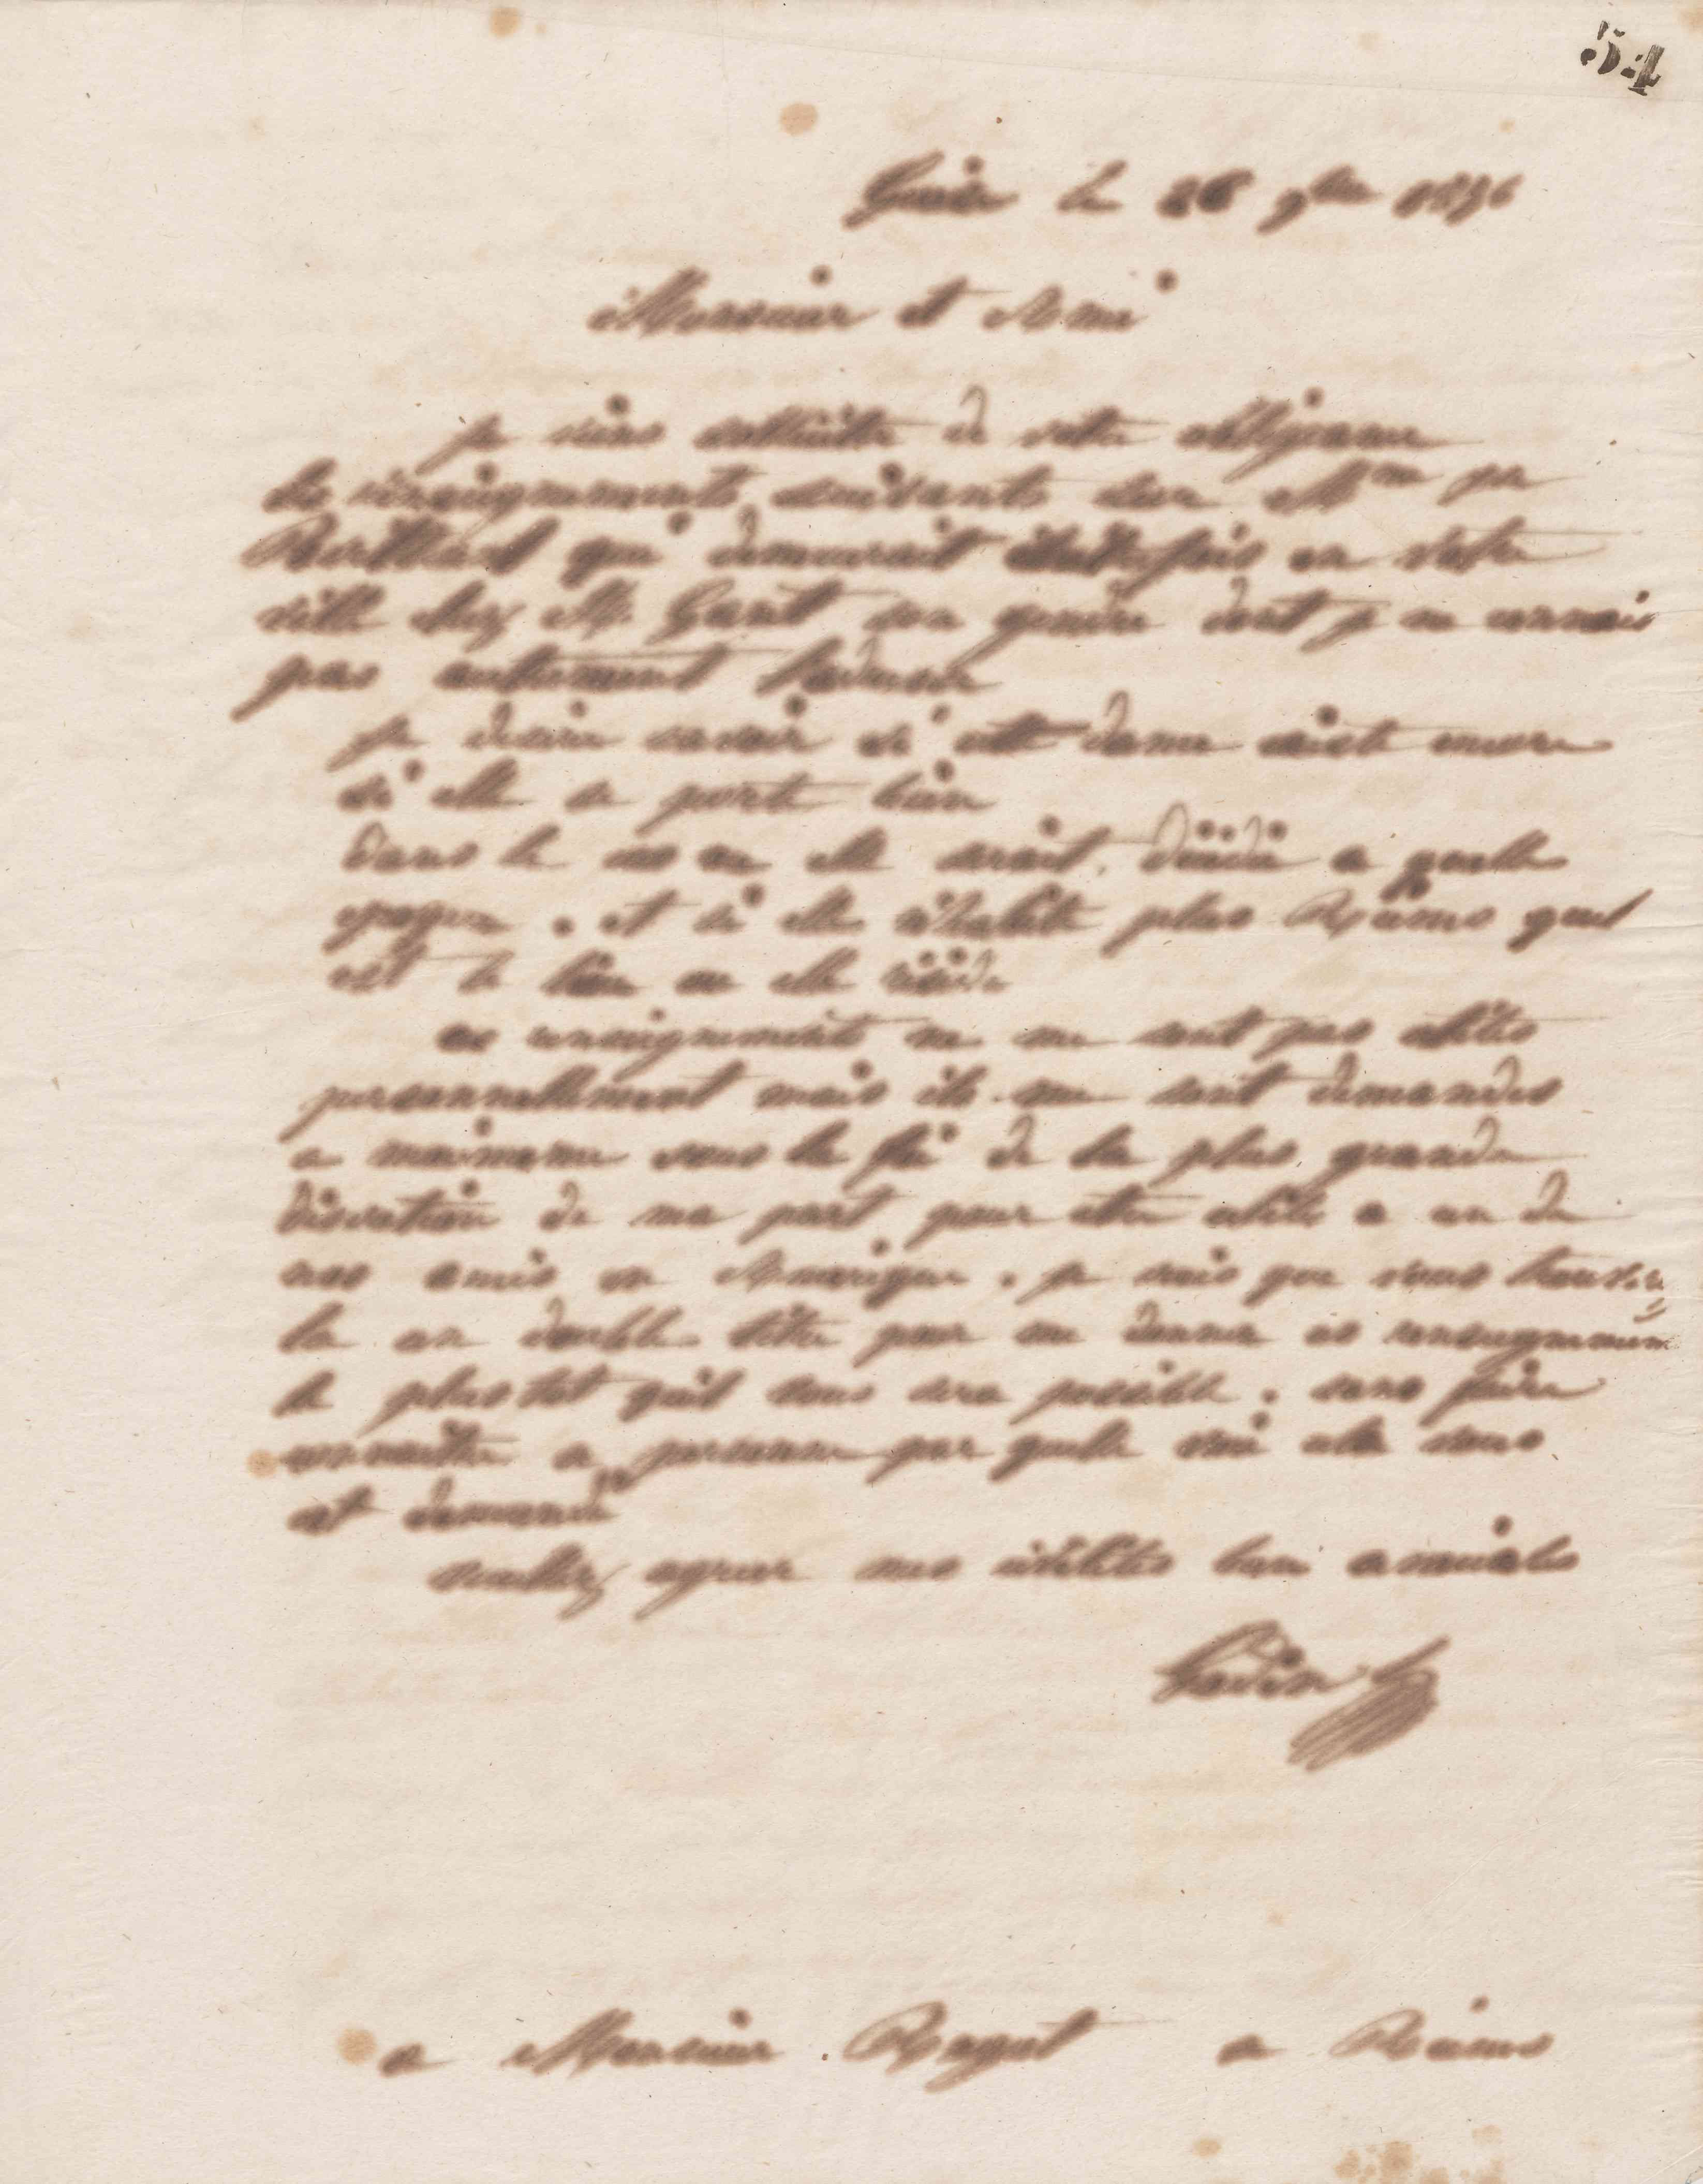 54
Guise le 28 9bre 1856
Monsieur et Ami
je viens solliciter de votre obligeance
les renseignements suivants sur Mme
qui demeurait autrefois en votre
ville chez M. son gendre dont je ne connais
pas autrement l'adresse
je desire savoir si cette dame existe encore
si elle se porte bien
dans le cas ou elle serait décédée a quelle
epoque . et si elle n'habite plus Reims quel
est le lieu ou elle réside
ces renseignements ne me sont pas utiles
personnellement mais ils me sont demandes
a moimeme sous la foi de la plus grande
discretion de ma part pour etre utile a un de
nos amis en Amerique . je sais que vous
la un double titre pour me donner ces
le plus tot quil vous sera possible . sans faire
connaitre a personne par quelle voie cela vous
est demandé
veuillez agreer mes civilités bien amicales
Godin
a Monsieur . Ragut a Reims